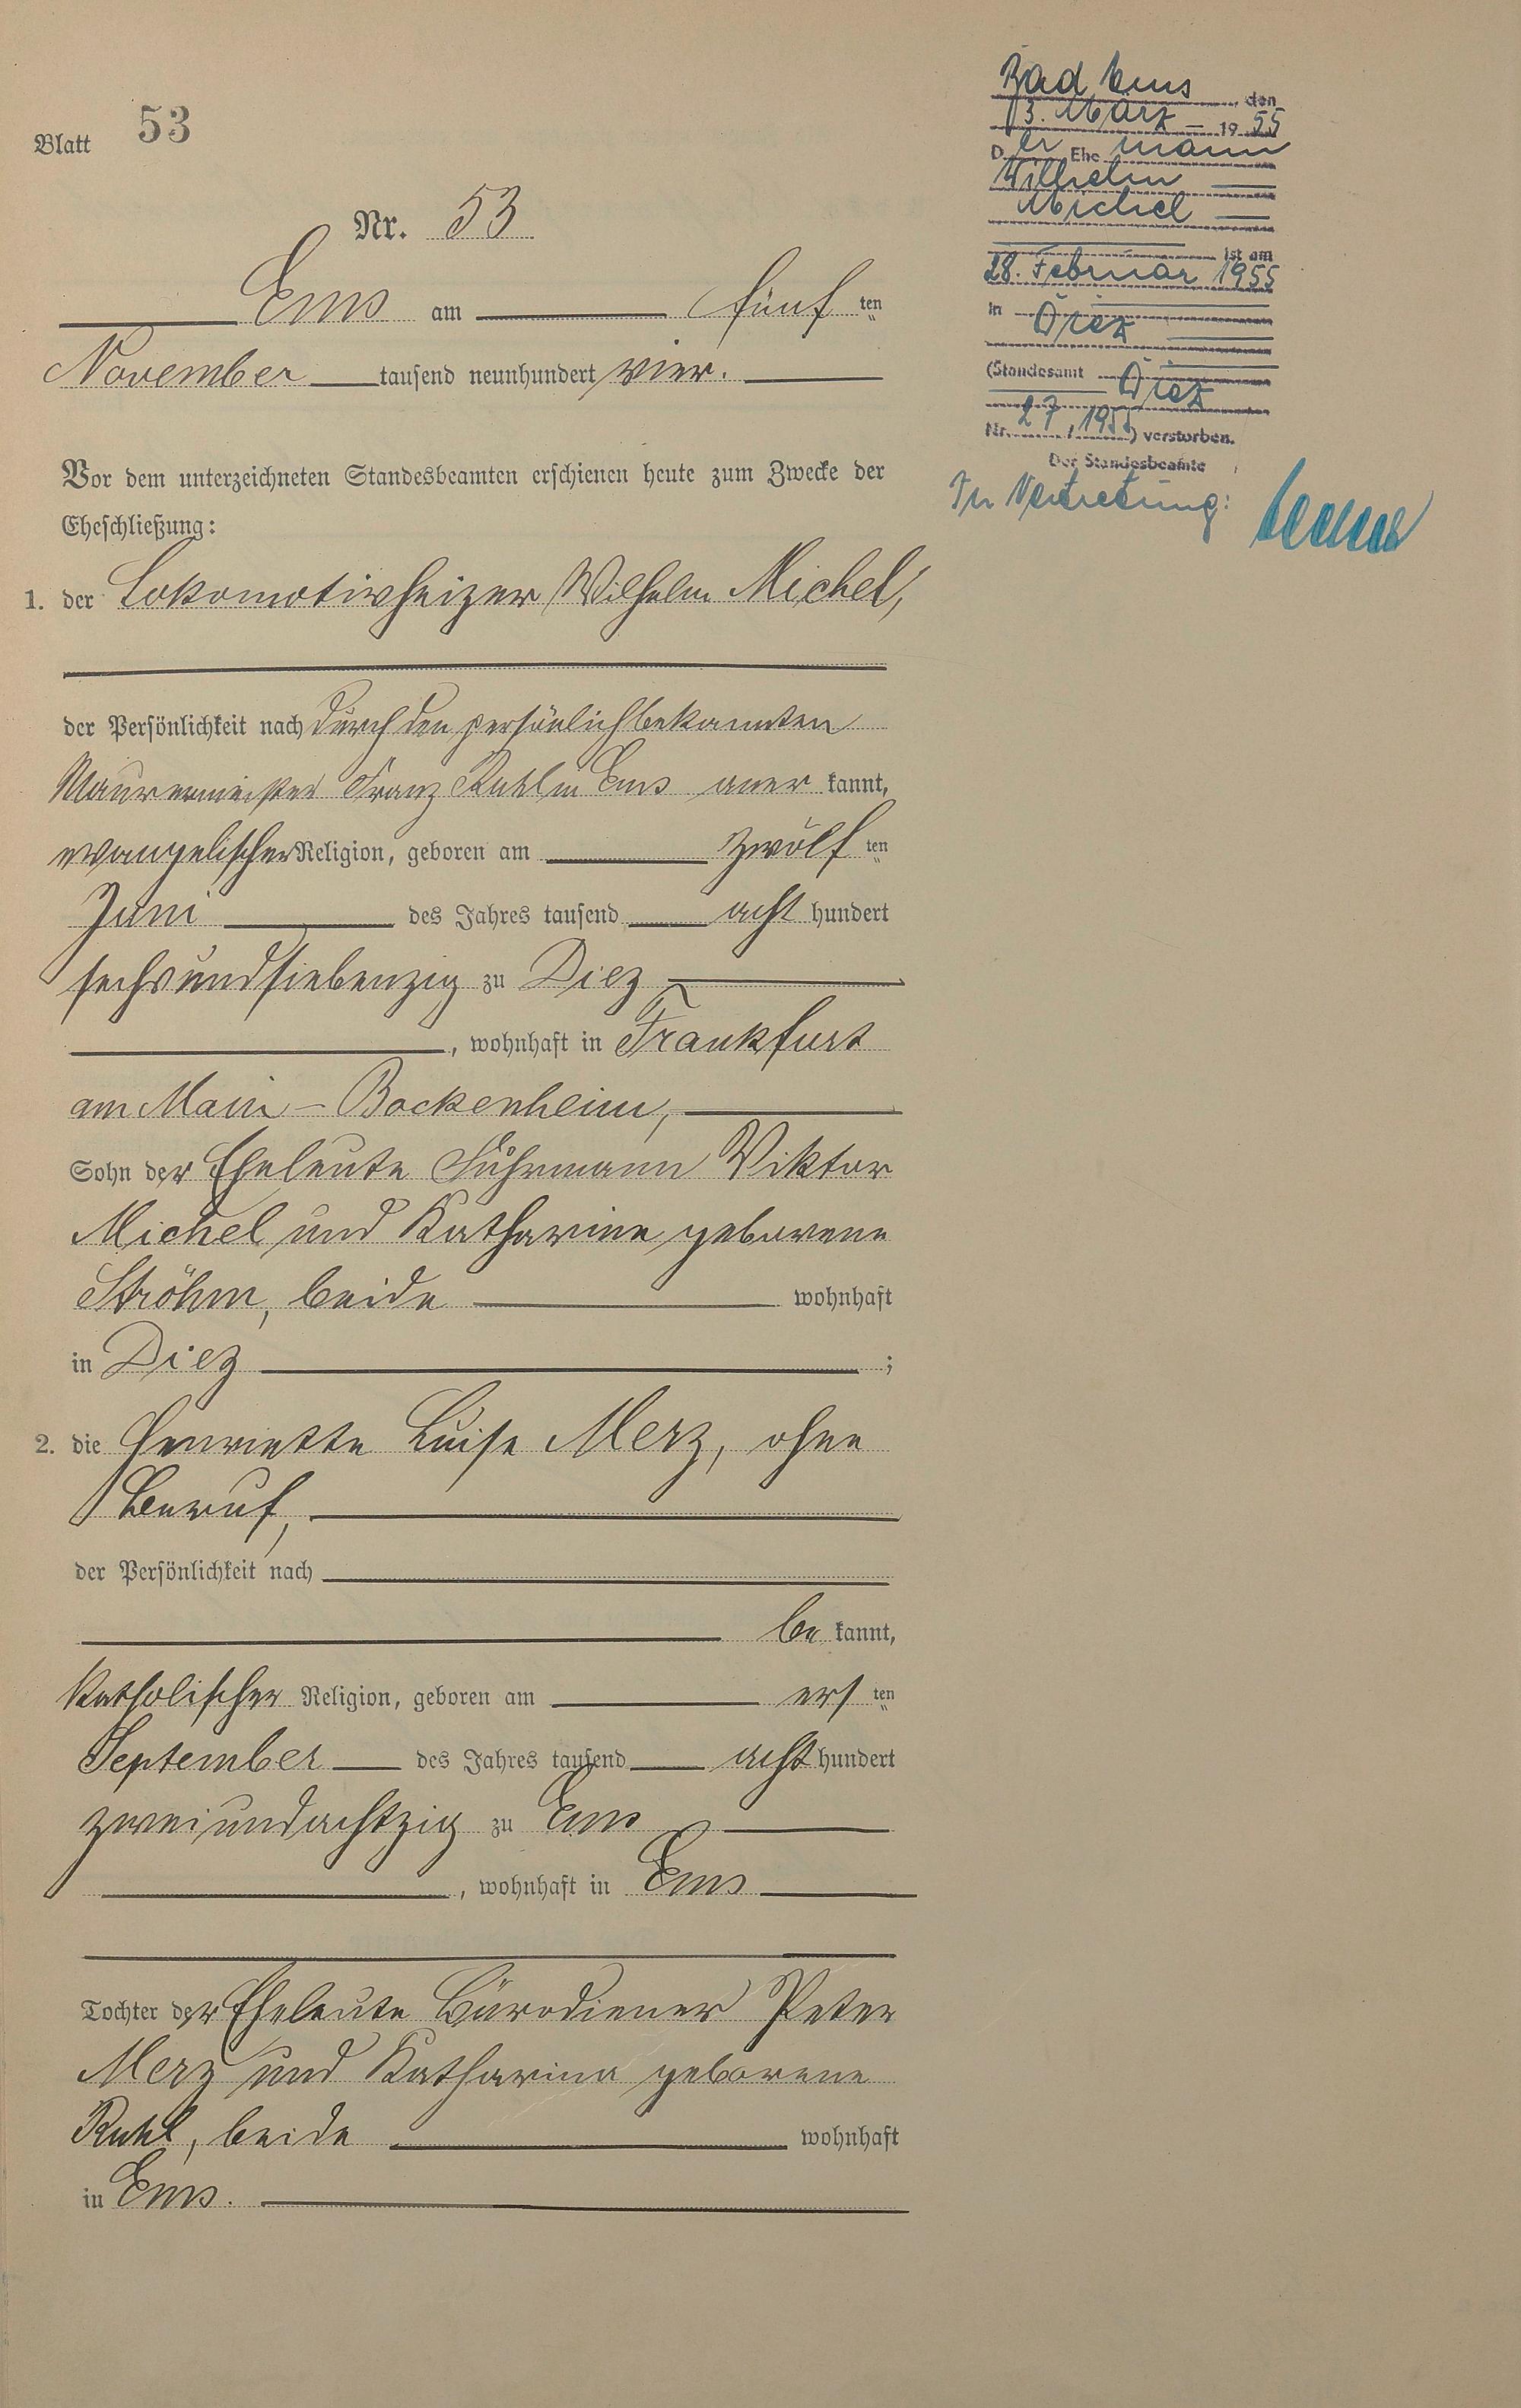 Blatt 53
Nr. 53
Ems am fünf ten
November tausend neunhundert vier.
Vor dem unterzeichneten Standesbeamten erschienen heute zum Zwecke der
Eheschließung:
1. der Lokomotivheizer Wilhelm Michel,
der Persönlichkeit nach durch den persönlich bekannten
Maurermeister Franz Ruhl in Ems aner kannt,
evangelischer Religion, geboren am zwölf ten
Juni des Jahres tausend acht hundert
sechsundsiebenzig zu Diez
, wohnhaft in Frankfurt
am Main - Bockenheim,
Sohn der Eheleute Fuhrmann Viktor
Michel und Katharine geborene
Ströhm, beide wohnhaft
in Diez ;
2. die Henriette Luise Merz, ohne
Beruf,
der Persönlichkeit nach
be kannt,
katholischer Religion, geboren am ers ten
September des Jahres tausend acht hundert
zweiundachtzig zu Ems
, wohnhaft in Ems
Tochter der Eheleute Bürodiener Peter
Merz und Katharina geborene
Ruhl, beide wohnhaft
in Ems.
Bad Ems, den
3. März 1955
Der Ehemann
Wilhelm
Michel
ist am
28. Februar 1955
in Diez
(Standesamt Diez
Nr. 27/1955) verstorben.
Der Standesbeamte
In Vertretung: